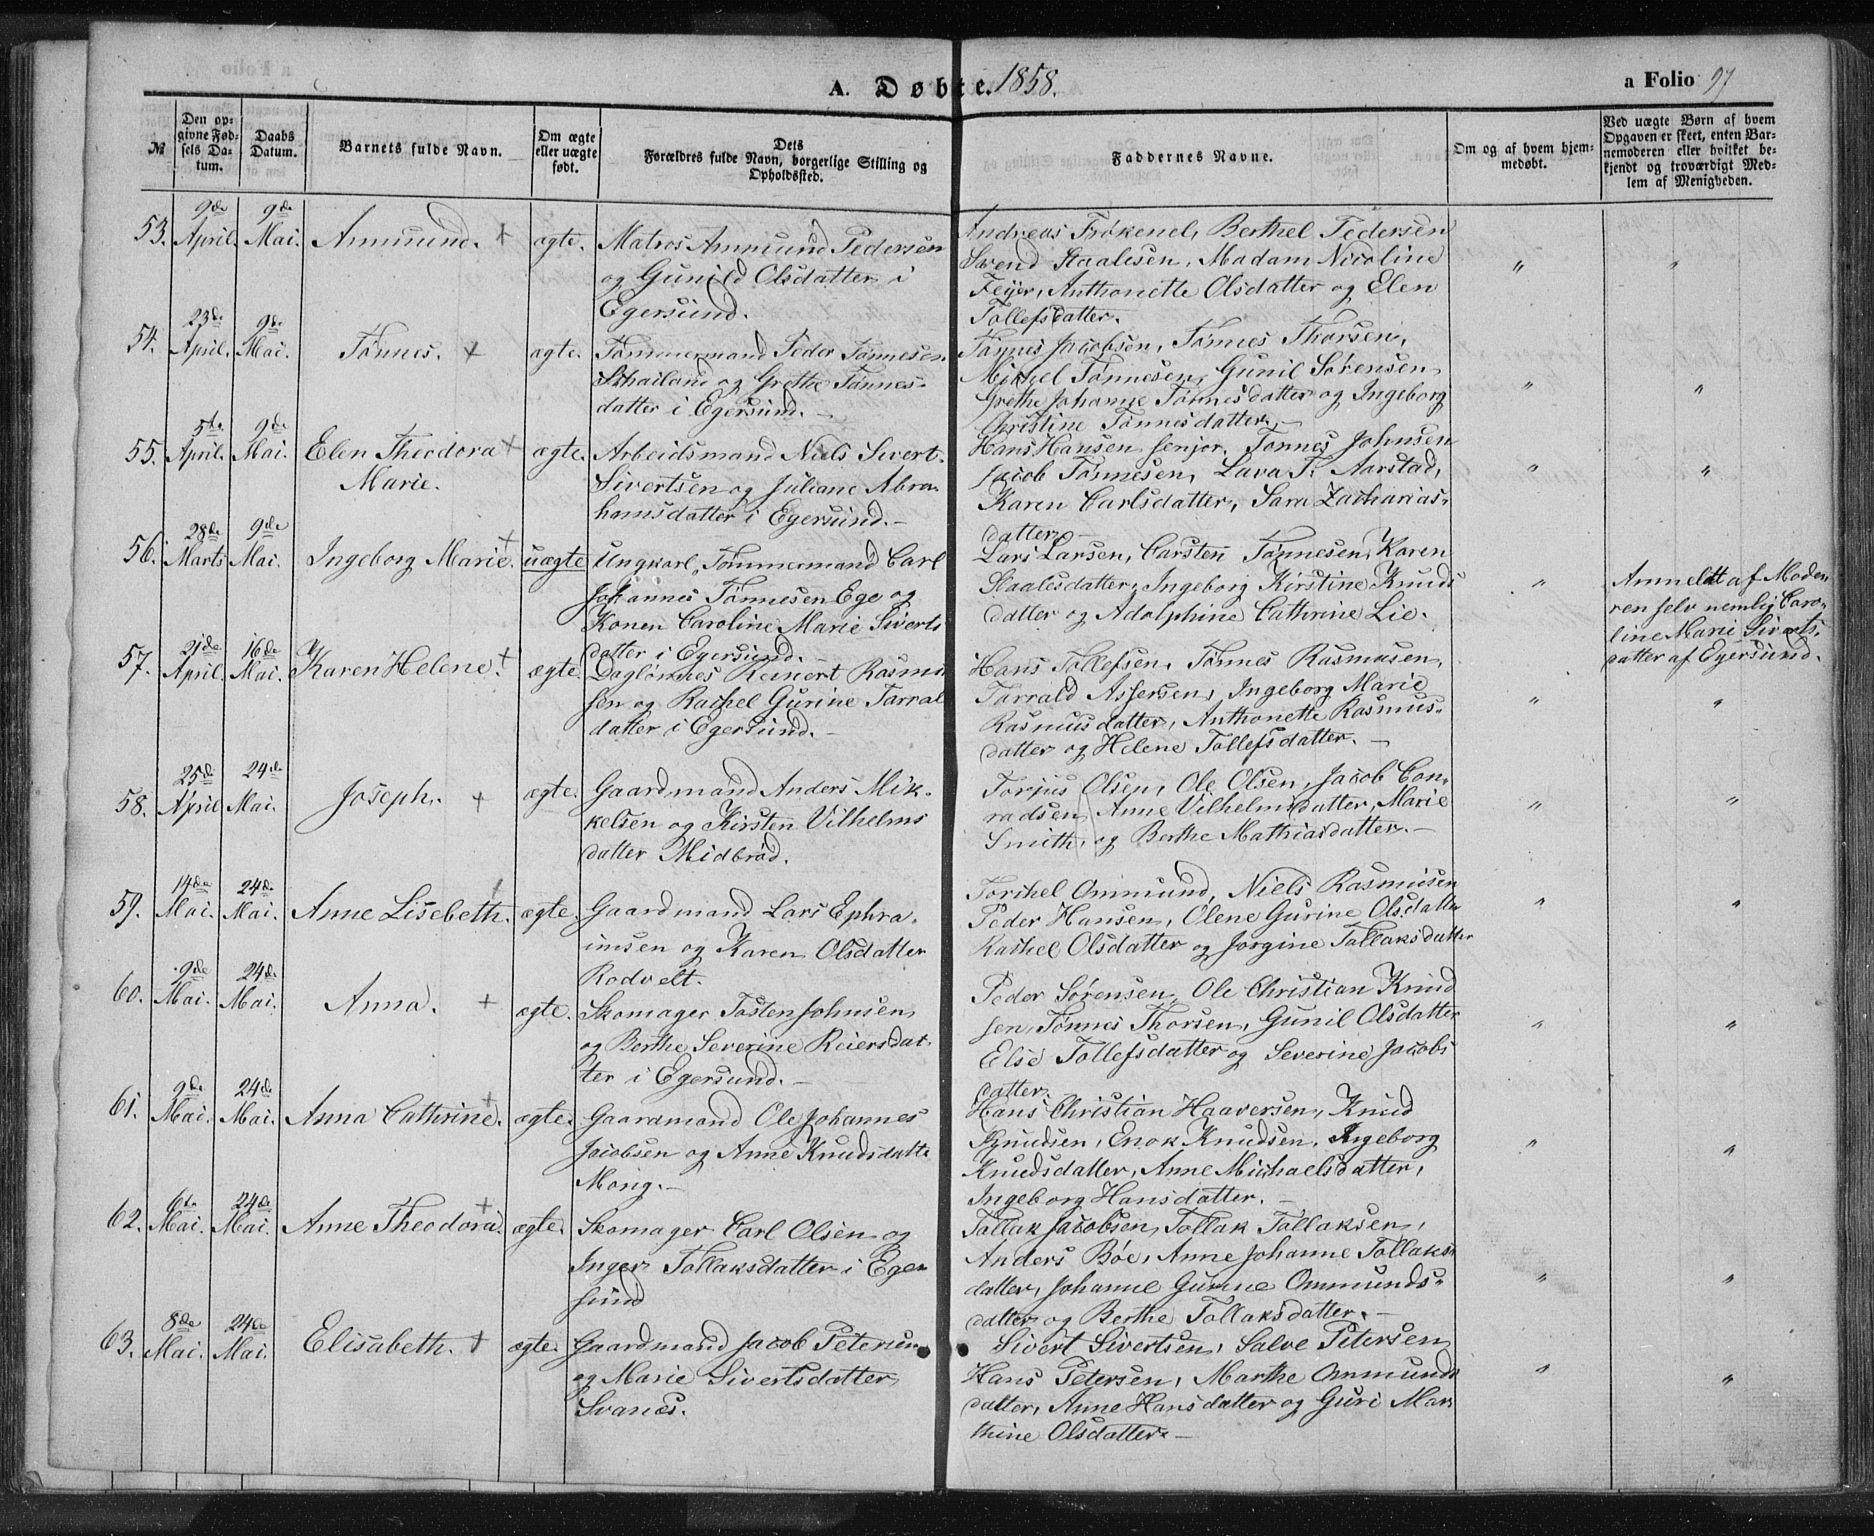 A. Døbte. 1858. a Folio 97
№
Den opgivne Fødsels Datum.
Daabs Datum.
Barnets fulde Navn.
Om ægte eller uægte født.
Dets Forældres fulde Navn, borgerlige Stilling og Opholdssted.
Faddernes Navne.
Om og af hvem hjemmedøbt.
Ved uægte Børn af hvem Opgaven er skeet, enten Barnemoderen eller hvilket bekjendt og troværdigt Medlem af Menigheden.
53. 9de April. 9de Mai. Ammund. + ægte.
Matros Ammund Pedersen
og Gunild Olsdatter i
Egersund.
Andreas Frøkenel, Berthel Pedersen
Svend Staalesen, Madam Nicoline
Feyer, Anthonette Olsdatter og Elen
Tollefsdatter. " "
54. 23de April. 9de Mai. Tønnes. + ægte.
Tømmermand Peder Tønnesen
og Grethe Tønnes-
datter i Egersund. -
Tønnes Jacobsen, Tønnes Thorsen,
Michel Tønnesen, Gunil Sørensen,
Grethe Johanne Tønnesdatter og Ingeborg
Christine Tønnesdatter. - " "
55. 5te April. 9de Mai. Elen Theodora +
Marie. ægte.
Arbeidsmand Niels Sivert.
Sivertsen og Juliane Abra-
hamsdatter i Egersund. -
Hans Hansen senjor, Tønnes Johnsen
Jacob Tønnesen, Lava T. Aarstad,
Karen Carlsdatter, Sara Zacharias-
datter. - " "
56. 28de Marts 9de Mai. Ingeborg Marie. + uægte
Ungkarl, Tømmermand Carl
Johannes Tønnesen Ege og
Konen Caroline Marie Siverts
datter i Egersund. -
Lars Larsen, Carsten Tønnesen, Karen
Staalesdatter, Ingeborg Kirstine Knuds
datter og Adolphine Cathrine Lie. "
Anmeldt af Mode-
ren selv nemlig Caro-
line Marie Siverts-
datter af Egersund.
57. 21de April. 16de Mai. Karen Helene. + ægte.
Daglønnes Reinert Rasmu
sen og Rachel Gurine Tarral
datter i Egersund. -
Hans Tollefsen, Tønnes Rasmusen,
Tarrald Assersen, Ingeborg Marie
Rasmusdatter, Anthonette Rasmus-
datter og Helene Tollefsdatter. - " "
58. 25de April 24de Mai. Joseph. + ægte.
Gaardmand Anders Mik-
kelsen og Kirsten Vilhelms
datter Midbrød.
Torjus Olsen, Ole Olsen, Jacob Con-
radsen, Anne Vilhelmsdatter, Marie
Smith, og Berthe Mathiasdatter. - " "
59. 14de Mai. 24de Mai. Anne Lisebeth. + ægte.
Gaardmand Lars Ephra-
imsen og Karen Olsdatter
Rodvelt.
Torchel Ommund, Niels Rasmusen
Peder Hansen, Olene Gurine Olsdatter
Rachel Olsdatter og Jorgine Tollaksdatter " "
60. 9de Mai. 24de Mai. Anna. + ægte.
Skomager Tosten Johnsen,
og Berthe Severine Reiersdat-
ter i Egersund. -
Peder Sørensen, Ole Christian Knud
sen, Tønnes Thorsen, Gunil Olsdatter
Else Tollefsdatter og Severine Jacobs
datter. " "
61. 9de Mai. 24de Mai. Anna Cathrine. + ægte.
Gaardmand Ole Johannes
Jacobsen og Anne Knudsdatte
Mong. -
Hans Christian Haaversen, Knud
Knudsen, Enok Knudsen, Ingeborg
Knudsdatter, Anne Michaelsdatter,
Ingeborg Hansdatter. - " "
62. 6te Mai. 24de Mai. Anne Theodora. + ægte.
Skomager Carl Olsen og
Inger Tollaksdatter i Eger
sund
Tollak Jacobsen, Tollak Tollaksen,
Anders Bøe, Anne Johanne Tollaks
datter, Johanne Gurine Ommunds-
datter og Berthe Tollaksdatter. - " "
63. 8de Mai. 24de Mai. Elisabeth. + ægte.
Gaardmand Jacob Petersen
og Marie Sivertsdatter
Svanes.
Sivert Sivertsen, Salve Petersen,
Hans Petersen, Marthe Ommunds
datter, Anne Hansdatter og Guri Mar-
thine Olsdatter. - " "